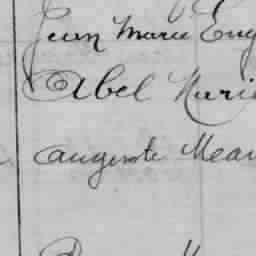 Jean Marie Eug
Abel Marie
Auguste Mear